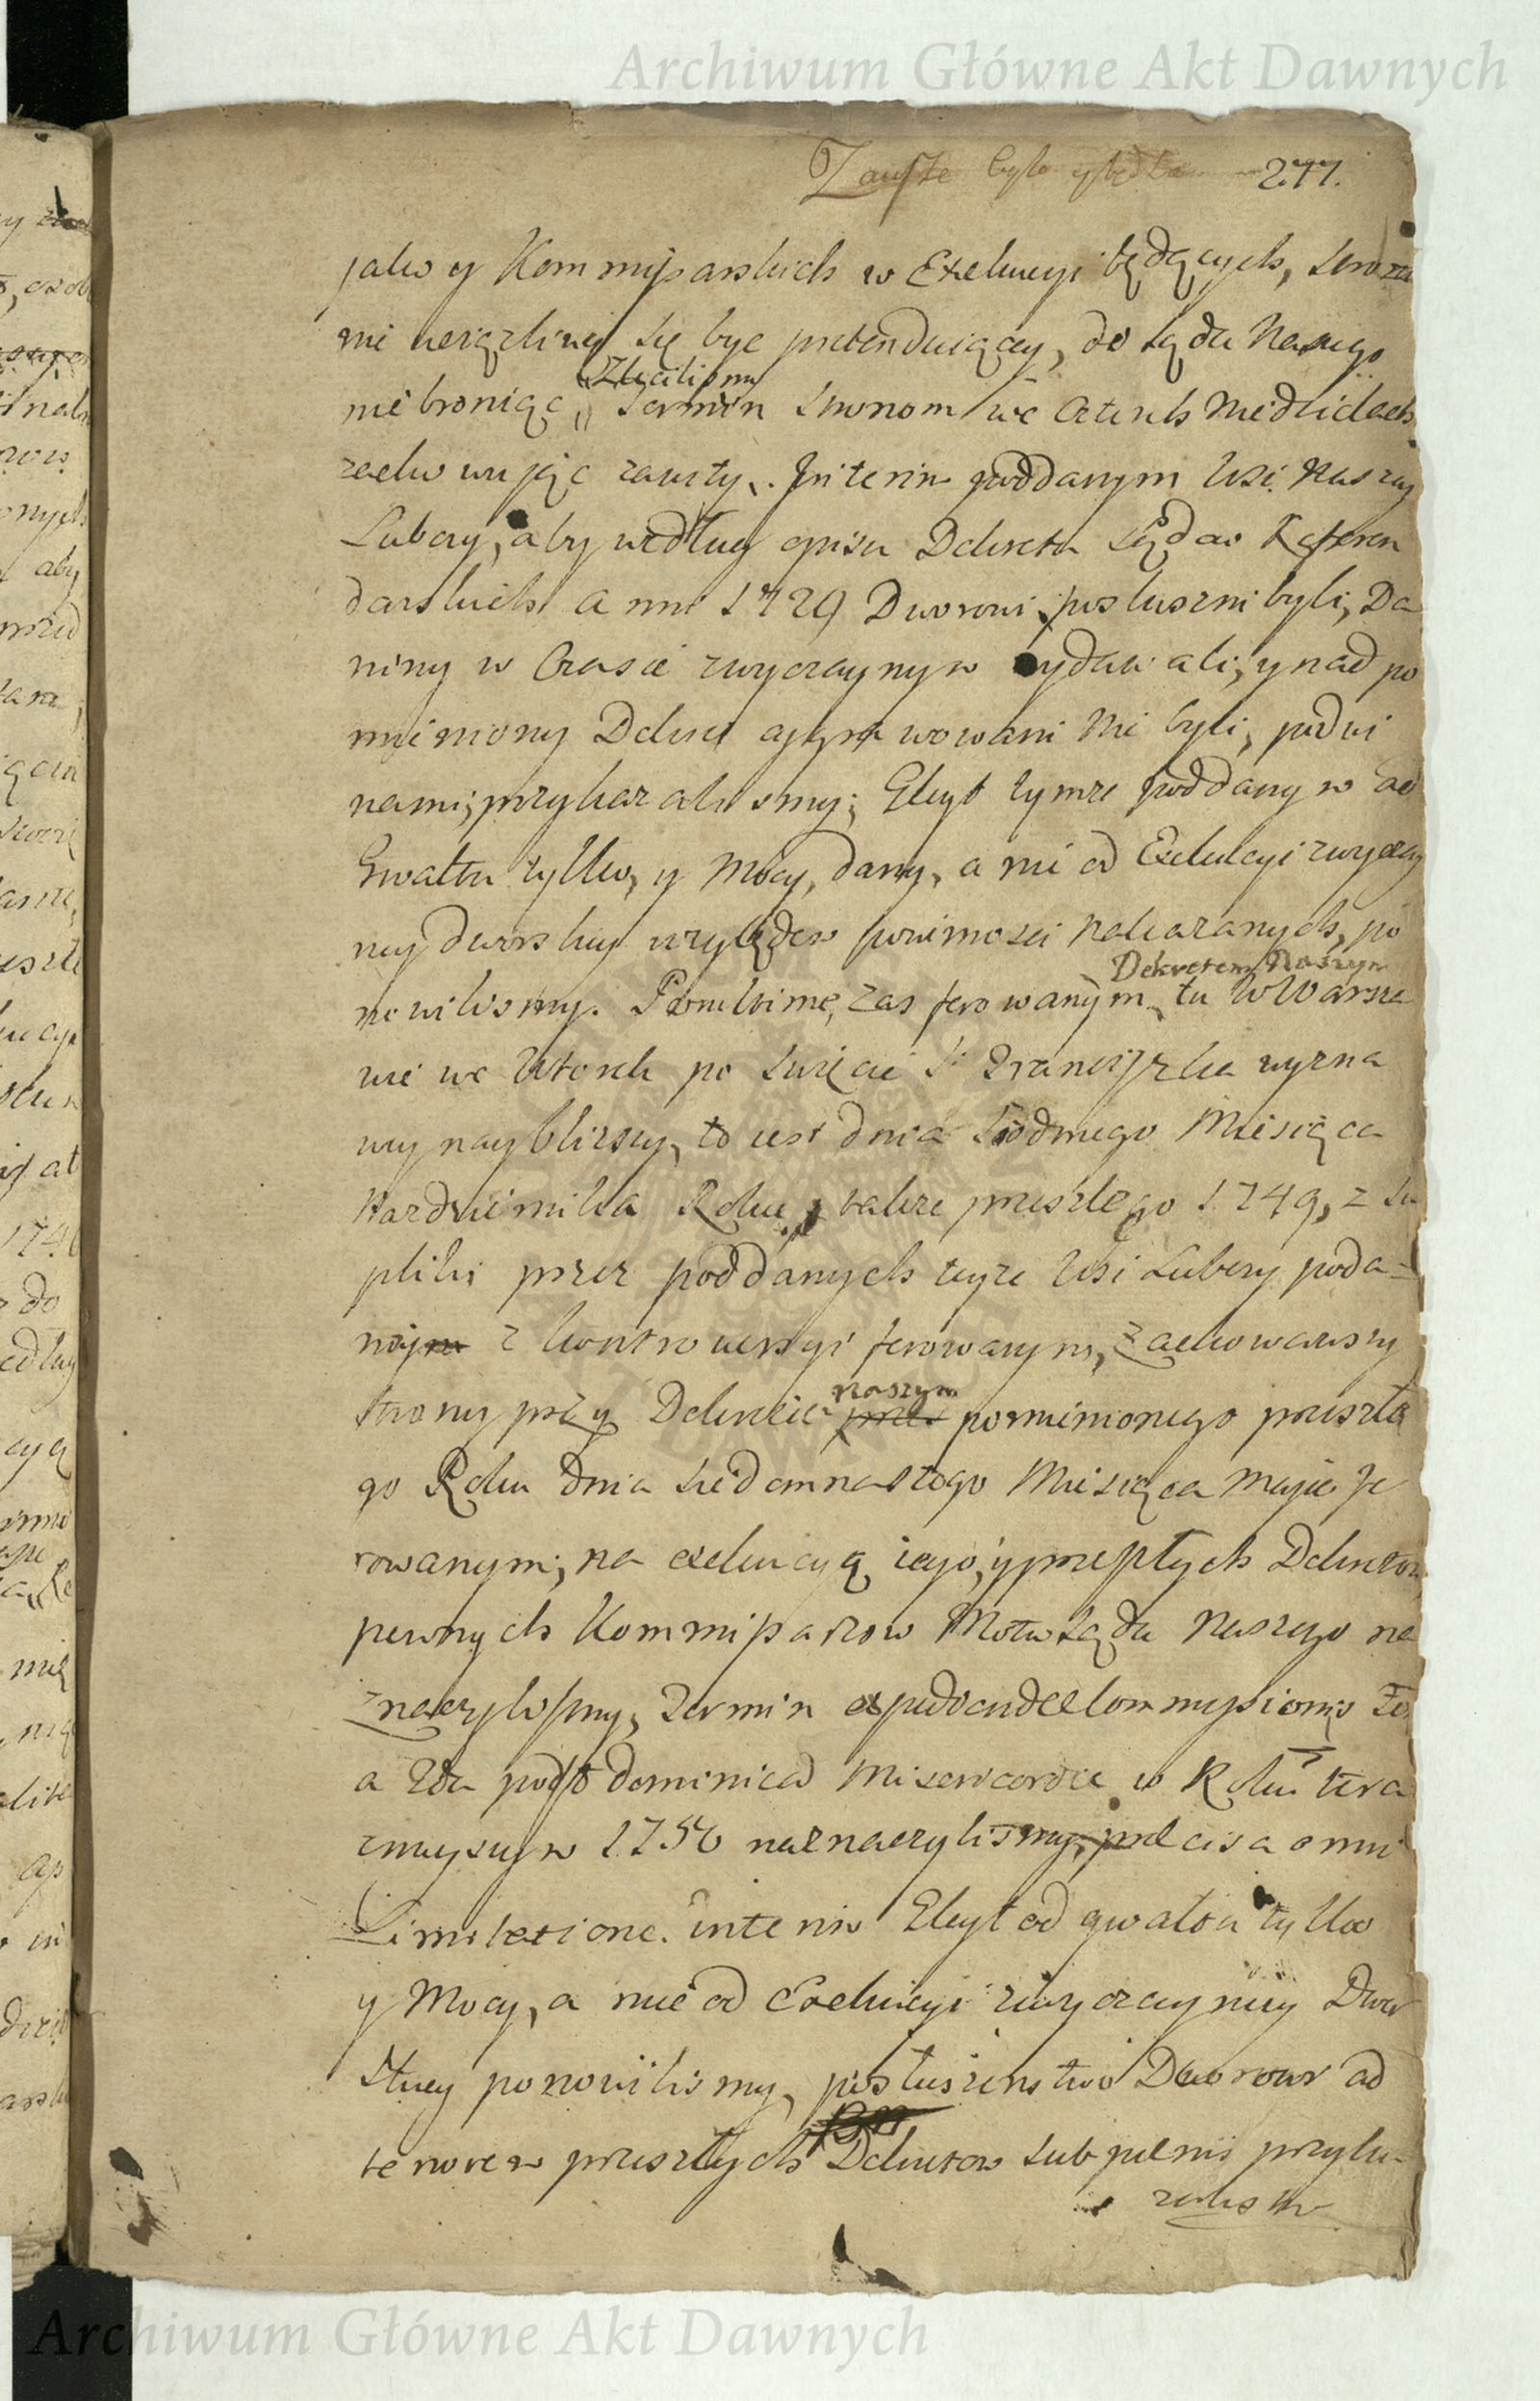 Archiwum Główne Akt Dawnych
277.
jako y Kommissarskich w Exekucyi będących, stro
nie uciążliwey się byc pretenduiącey, do sądu Naszego
nie broniąc, Termin Stronom we Czterech Niedzielach
zachowując zawity. Interim poddanym Wsi Naszey
Lubczy, aby według opisu Dekretu Sądow Referen
darskich anni 1729 Dworowi posłuszni byli, Da
niny w Czasie zwyczaynym oydawali, y nad po
mieniony Dekret aggrawowani nie byli, pod wi
nami, przykazalismy; Gleyt tymze poddanym od
Gwałtu tylko, y Mocy, dany, a nie od Exekucyi zwyczay
ney dworskiey względem powinnosci nakazanych, po
nowilismy. Powtorne, zas ferowanym tu w Warsza
Dekretem Naszym
wie we Wtorek po Swięcie S. Franciszka wyzna
wcy nayblizszy, to iest dnia Siodmego Miesiąca
Pazdziernika Roku, takze przeszłego 1749, z su
pliki przez poddanych teyze Wsi Lubczy poda-
ney z kontrowersyi ferowanym, zachowawszy
strony przy Dekrecie naszym pomienionego przeszłe
go Roku dnia siedemnastego Miesiąca Maja fe
rowanym, na exekucyą iego, y przeszłych Dekretow,
pewnych Kommissarzow Motu Sądu Naszego na
znaczylismy, Termin expediendae Commissionis
a 2da post dominicam Misericordiae w Roku tera
znieyszym 1750 naznaczylismy, praecisa omni
Limitatione. interim Gleyt od gwałtu tylko
y Mocy, a nie od Exekucyi zwyczayney Dwor
skiey ponowilismy, posłuszenstwo Dworowi ad
tenorem przeszłych Dekretow sub poenis przyka-
zalismy
Archiwum Główne Akt Dawnych